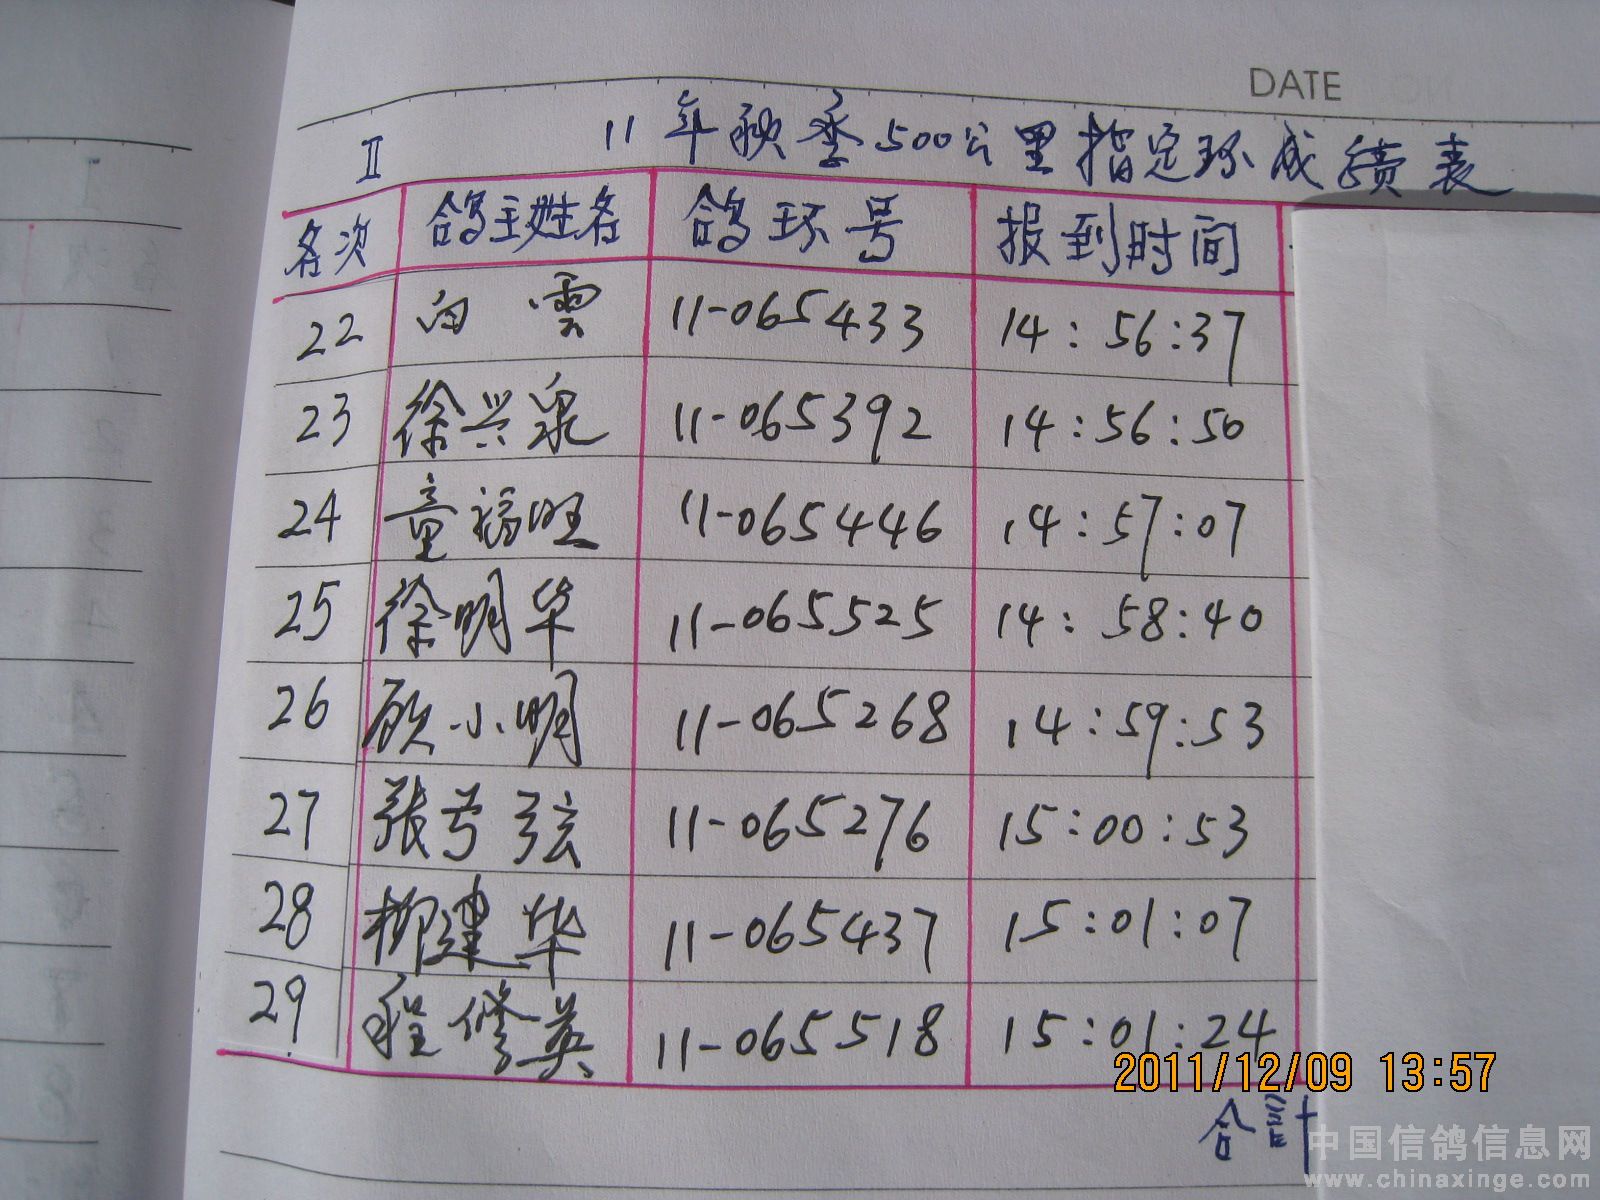 DATE
II 11年秋季500公里指定环成绩表
名次 鸽主姓名 鸽环号 报到时间
22 白雲 11-065433 14:56:37
23 徐兴泉 11-065392 14:56:50
24 童福旺 11-065446 14:57:07
25 徐明华 11-065525 14:58:40
26 顾小明 11-065268 14:59:53
27 张号弦 11-065276 15:00:53
28 柳建华 11-065437 15:01:07
29 程修英 11-065518 15:01:24
2011/12/09 13:57
合計
中国信鸽信息网
www.chinaxinge.com